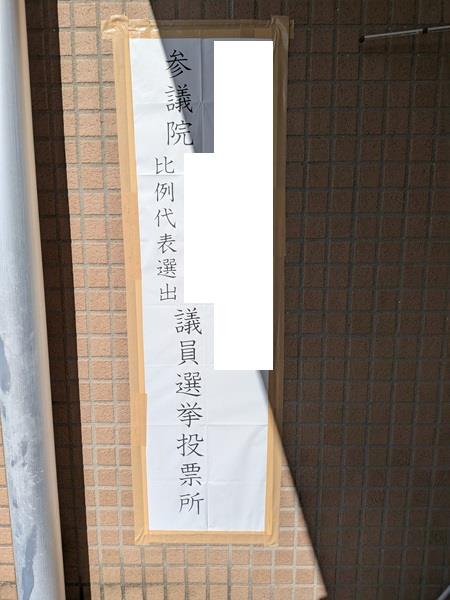 参議院比例代表選出議員選挙投票所